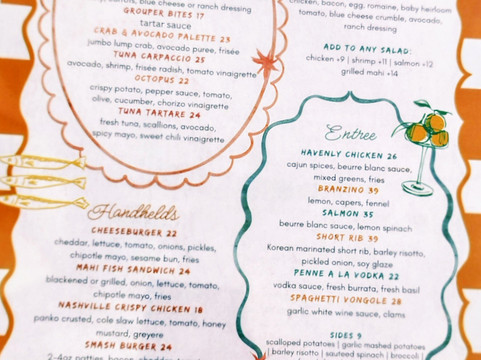 blue cheese or ranch dressing
GROUPER BITES 17
tartar sauce
CRAB & AVOCADO PALETTE 23
jumbo lump crab, avocado puree, frisée
TUNA CARPACCIO 25
avocado, shrimp, frisée radish, tomato vinaigrette
OCTOPUS 22
crispy potato, pepper sauce, tomato,
olive, cucumber, chorizo vinaigrette
TUNA TARTARE 24
fresh tuna, scallions, avocado,
spicy mayo, sweet chili vinaigrette
Handhelds
CHEESEBURGER 22
cheddar, lettuce, tomato, onions, pickles,
chipotle mayo, sesame bun, fries
MAHI FISH SANDWICH 24
blackened or grilled, onion, lettuce, tomato,
chipotle mayo, fries
NASHVILLE CRISPY CHICKEN 18
panko crusted, cole slaw lettuce, tomato, honey
mustard, greyere
SMASH BURGER 24
2-4oz patties, bacon, cheddar
chicken, bacon, egg, romaine, baby heirloom
tomato, blue cheese crumble, avocado,
ranch dressing
ADD TO ANY SALAD:
chicken +9 | shrimp +11 | salmon +12
grilled mahi +14
Entree
HAVENLY CHICKEN 26
cajun spices, beurre blanc sauce,
mixed greens, fries
BRANZINO 39
lemon, capers, fennel
SALMON 35
beurre blanc sauce, lemon spinach
SHORT RIB 39
Korean marinated short rib, barley risotto,
pickled onion, soy glaze
PENNE A LA VODKA 22
vodka sauce, fresh burrata, fresh basil
SPAGHETTI VONGOLE 28
garlic white wine sauce, clams
SIDES 9
scalloped potatoes | garlic mashed potatoes
| barley risotto | sauteed spinach | broccoli |